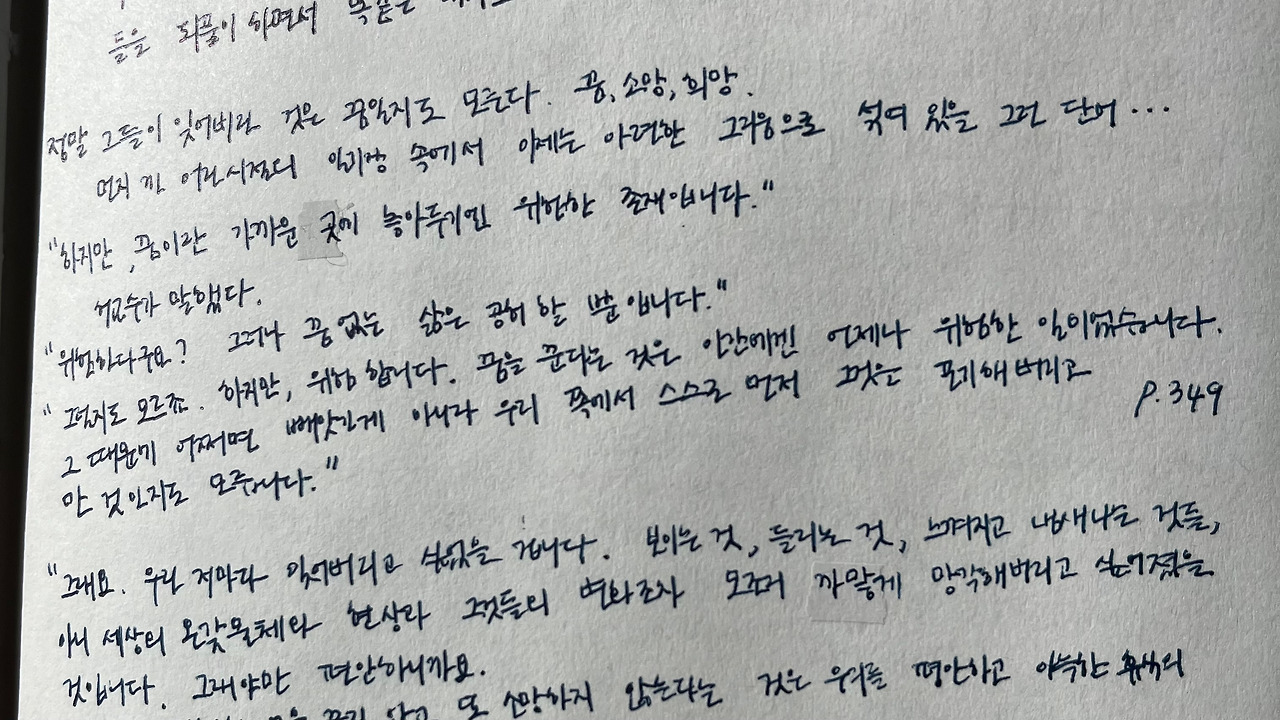 들을 되풀이 하면서
정말 그들이 잊어버린 것은 꿈일지도 모른다. 꿈, 소망, 희망.
먼지 낀 어린시절의 일기장 속에서 이제는 아련한 그리움으로 섞여 있을 그런 단어 ...
"하지만, 꿈이란 가까운 곳에 놓아두기엔 위험한 존재입니다."
서교수가 말했다.
"위험하다구요? 그러나 꿈 없는 삶은 공허 할 뿐입니다."
"그럴지도 모르죠. 하지만, 위험 합니다. 꿈을 꾼다는 것은 인간에겐 언제나 위험한 일이었습니다.
그 때문에 어쩌면 빼앗긴게 아니라 우리 쪽에서 스스로 먼저 그것을 포기해 버리고
만 것인지도 모릅니다." p.349
"그래요. 우린 저마다 잊어버리고 싶었을 겁니다. 보이는 것, 들리는 것, 느껴지고 냄새나는 것들,
아니 세상의 온갖 물체와 현상과 그것들의 변화조차 모조리 까맣게 망각해버리고 싶어졌을
것입니다. 그래야만 편안하니까요.
꾸지 않고 또 소망하지 않는다는 것은 우리를 편안하고 아늑한 휴식의